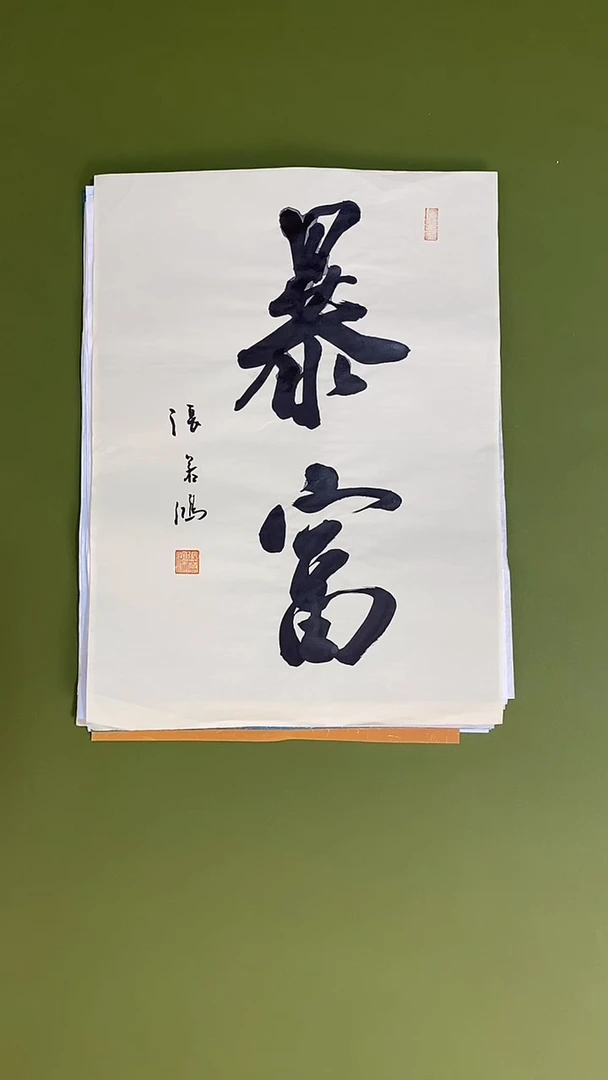 暴富
張若鴻